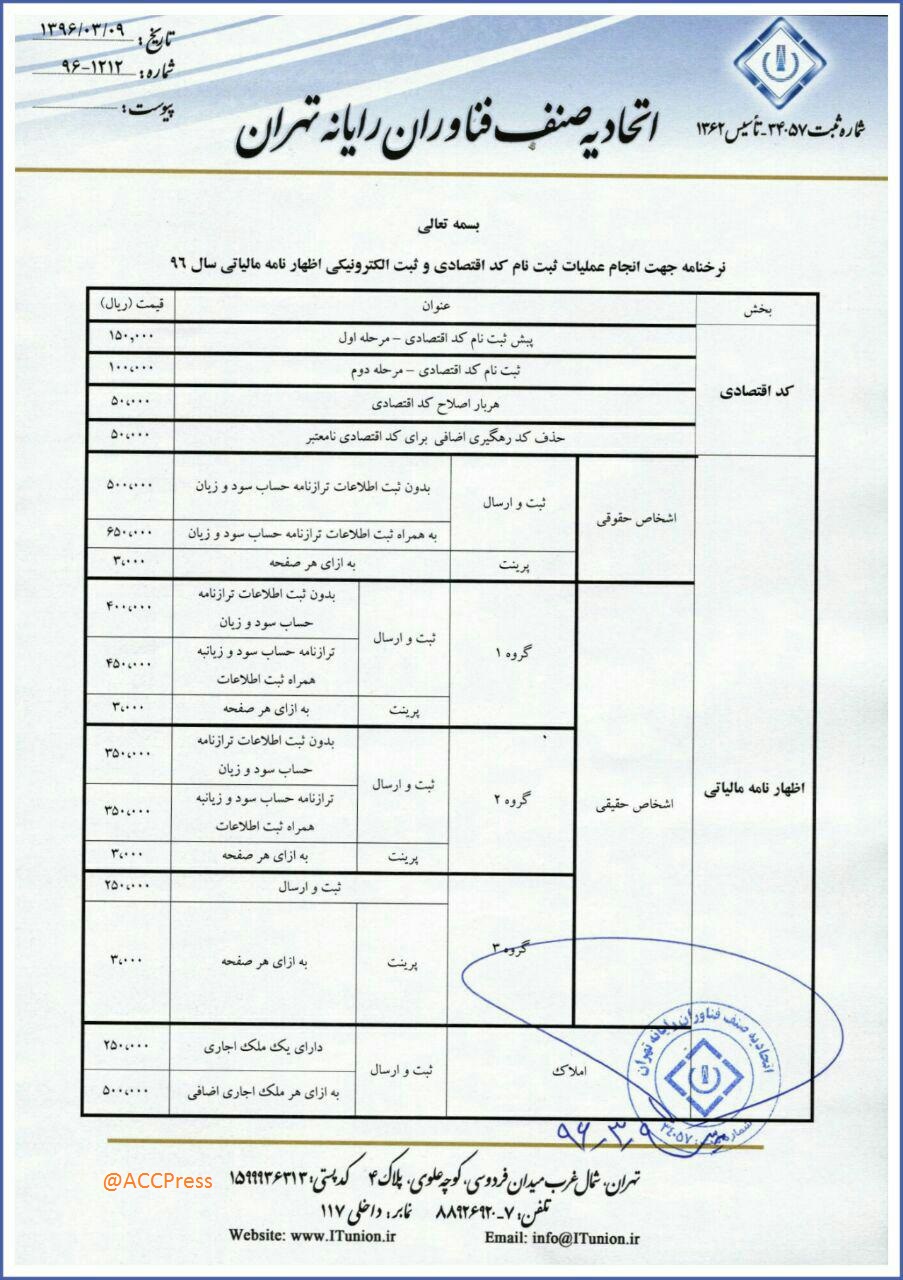 تاریخ: ۱۳۹۶/۰۳/۰۹
شماره: ۹۶-۱۲۱۲
پیوست:
شماره ثبت ۳۴۰۵۷-تأسیس ۱۳۶۲
اتحادیه صنف فناوران رایانه تهران
بسمه تعالی
نرخنامه جهت انجام عملیات ثبت نام کد اقتصادی و ثبت الکترونیکی اظهار نامه مالیاتی سال ۹۶
بخش عنوان قیمت (ریال)
کد اقتصادی
پیش ثبت نام کد اقتصادی – مرحله اول ۱۵۰,۰۰۰
ثبت نام کد اقتصادی – مرحله دوم ۱۰۰,۰۰۰
هربار اصلاح کد اقتصادی ۵۰,۰۰۰
حذف کد رهگیری اضافی برای کد اقتصادی نامعتبر ۵۰,۰۰۰
اظهار نامه مالیاتی
اشخاص حقوقی
ثبت و ارسال
بدون ثبت اطلاعات ترازنامه حساب سود و زیان ۵۰۰,۰۰۰
به همراه ثبت اطلاعات ترازنامه حساب سود و زیان ۶۵۰,۰۰۰
پرینت به ازای هر صفحه ۳,۰۰۰
اشخاص حقیقی
گروه ۱
ثبت و ارسال
بدون ثبت اطلاعات ترازنامه
حساب سود و زیان
۴۰۰,۰۰۰
ترازنامه حساب سود و زیانبه
همراه ثبت اطلاعات
۴۵۰,۰۰۰
پرینت به ازای هر صفحه ۳,۰۰۰
گروه ۲
ثبت و ارسال
بدون ثبت اطلاعات ترازنامه
حساب سود و زیان
۳۵۰,۰۰۰
ترازنامه حساب سود و زیانبه
همراه ثبت اطلاعات
۳۵۰,۰۰۰
پرینت به ازای هر صفحه ۳,۰۰۰
گروه ۳
ثبت و ارسال ۲۵۰,۰۰۰
پرینت به ازای هر صفحه ۳,۰۰۰
املاک
ثبت و ارسال
دارای یک ملک اجاری ۲۵۰,۰۰۰
به ازای هر ملک اجاری اضافی ۵۰۰,۰۰۰
اتحادیه صنف فناوران رایانه تهران
شماره ثبت: ۳۴۰۵۷
۹۶-۳-۹
@ACCPress
تهران، شمال غرب میدان فردوسی، کوچه علوی، پلاک ۴ کدپستی: ۱۵۹۹۹۳۶۳۱۳
تلفن: ۷-۸۸۹۲۶۹۲۰ نمابر: داخلی ۱۱۷
Website: www.ITunion.ir Email: info@ITunion.ir